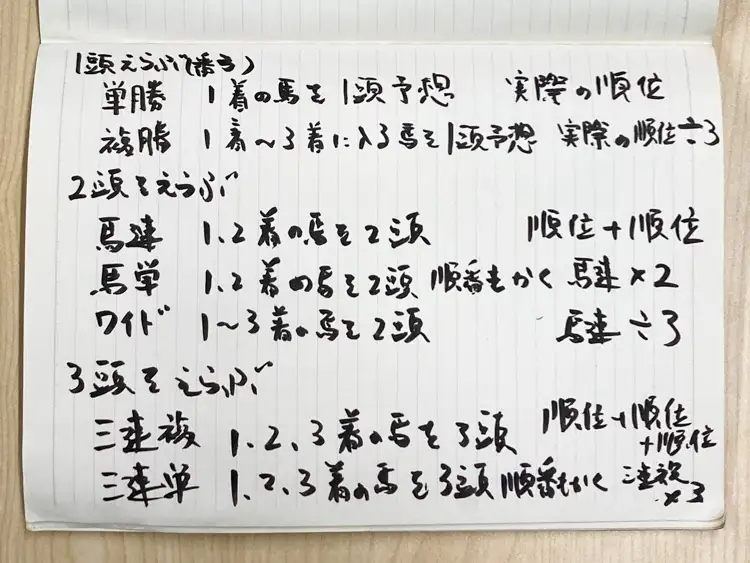 1頭えらぶ(番号)
単勝 1着の馬を1頭予想 実際の順位
複勝 1着~3着に入る馬を1頭予想 実際の順位÷3
2頭をえらぶ
馬連 1、2着の馬を2頭 順位+順位
馬単 1、2着の馬を2頭 順番もかく 馬連×2
ワイド 1~3着の馬を2頭 馬連÷3
3頭をえらぶ
三連複 1、2、3着の馬を3頭 順位+順位+順位
三連単 1、2、3着の馬を3頭 順番もかく 三連複×3